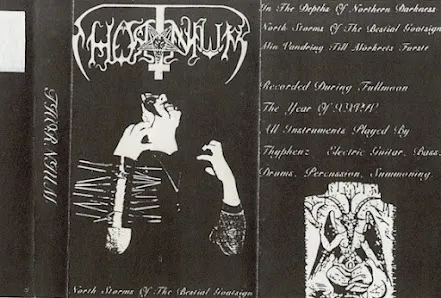 THORNIUM
THORNIUM
North Storms Of The Bestial Goatsign
In The Depths Of Northern Darkness
North Storms Of The Bestial Goatsign
Min Vandring Till Morkrets Furste
Recorded During Fullmoon
The Year Of
All Instruments Played By
Thyphenz Electric Guitar, Bass,
Drums, Percussion, Summoning.